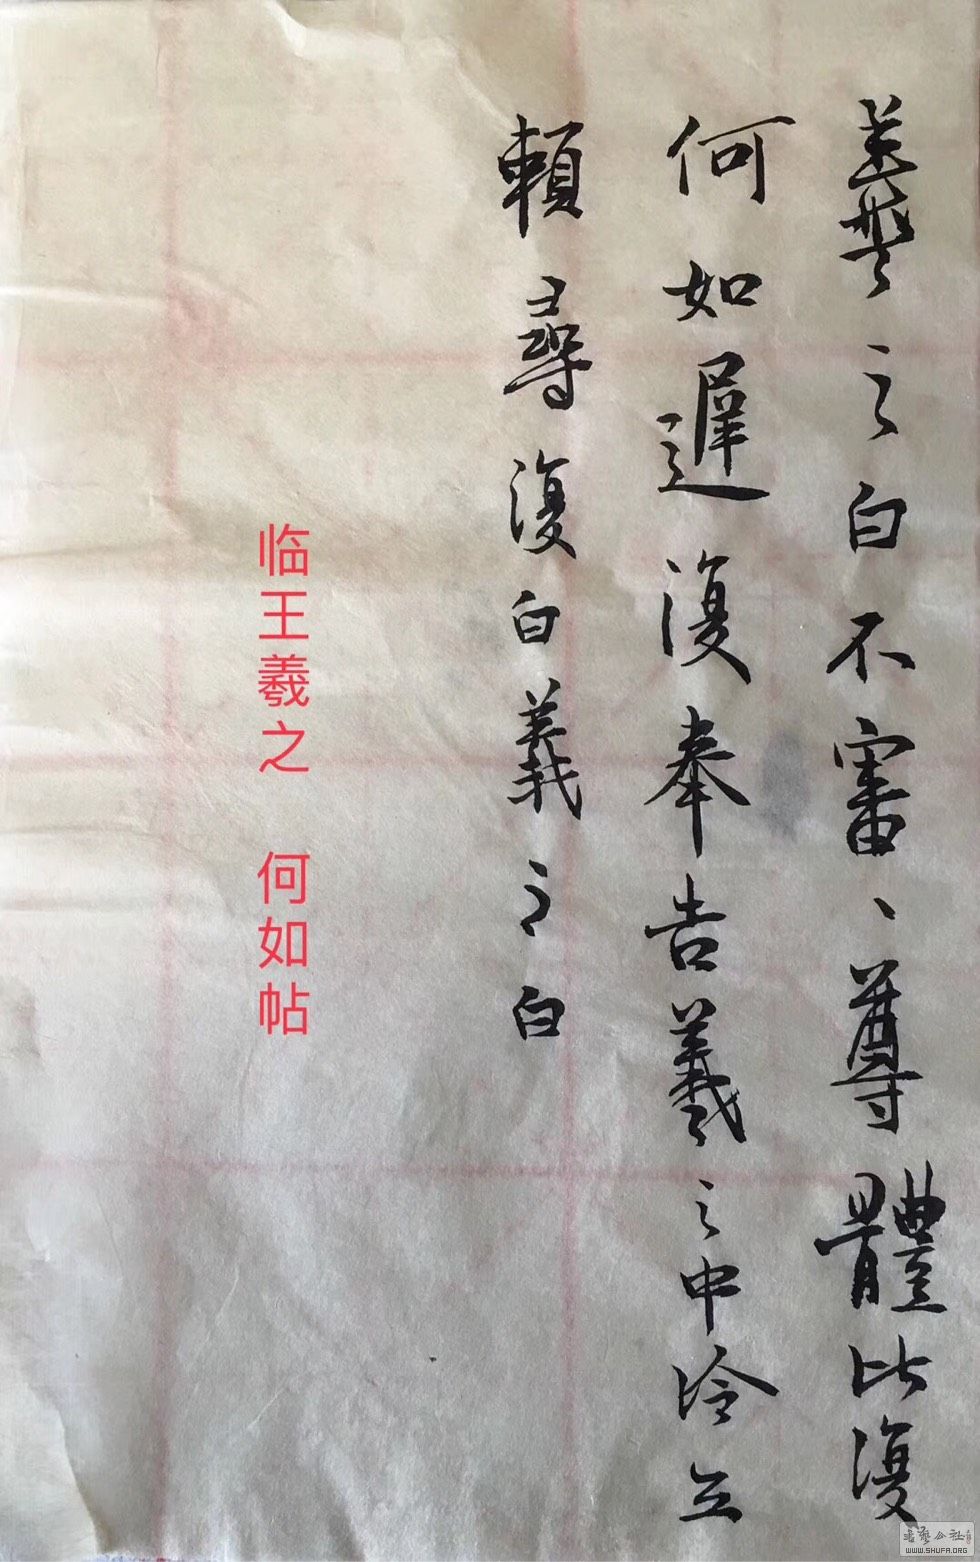 羲之白不審、尊體比復
何如遲復奉告羲之中冷立
頼尋復白羲之白
临王羲之 何如帖
书艺公社
WWW.SHUFA.ORG